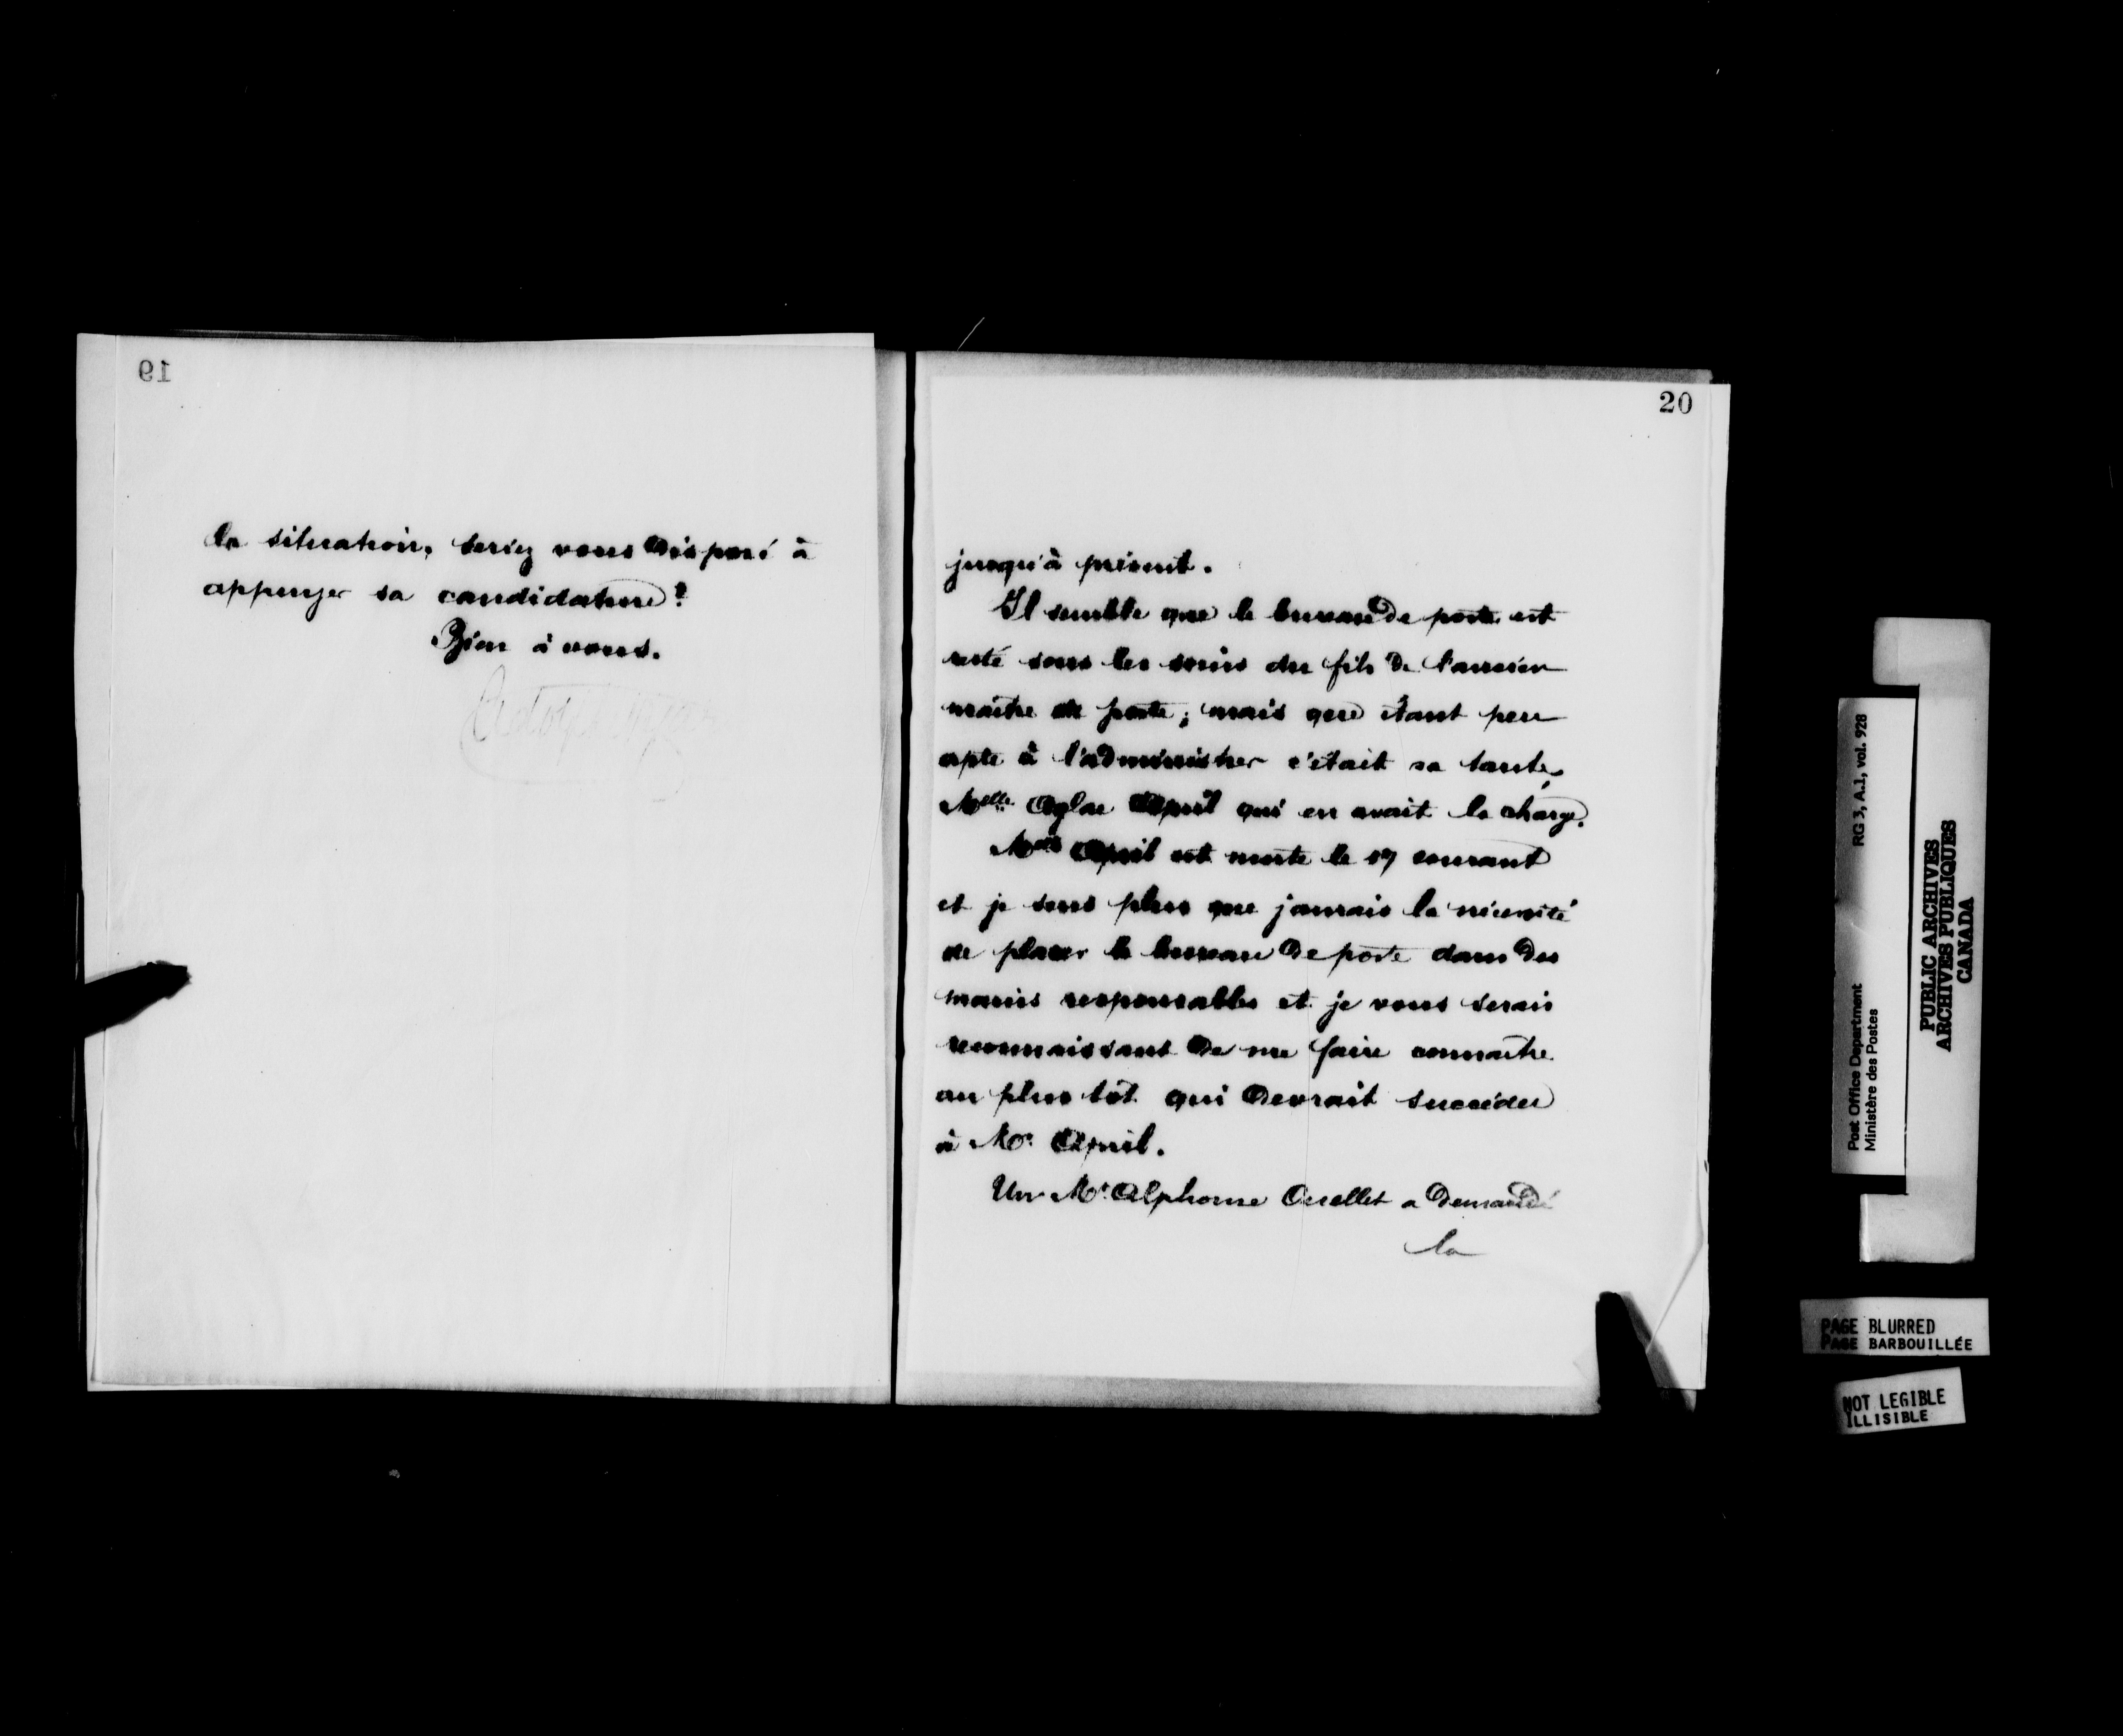 19
la situation, seriez vous disposé à
appuyer sa candidature?
Bien à vous.
20
jusqu'à présent.
Il semble que le bureau de poste est
resté sous les soins du fils de l'ancien
maître de poste; mais que étant peu
apte à l'administrer c'était sa tante,
Melle Aglae April qui en avait la charge.
Melle April est morte le 17 courant
et je sens plus que jamais la nécessité
de placer le bureau de poste dans des
mains responsables et je vous serais
reconnaissant de me faire connaître
au plus tôt qui devrait succéder
à Mr April.
Un Mr Alphonse Ouellet a demandé
la
RG 3, A.1, vol. 928
Post Office Department
Ministère des Postes
PUBLIC ARCHIVES
ARCHIVES PUBLIQUES
CANADA
PAGE BLURRED
PAGE BARBOUILLÉE
NOT LEGIBLE
ILLISIBLE